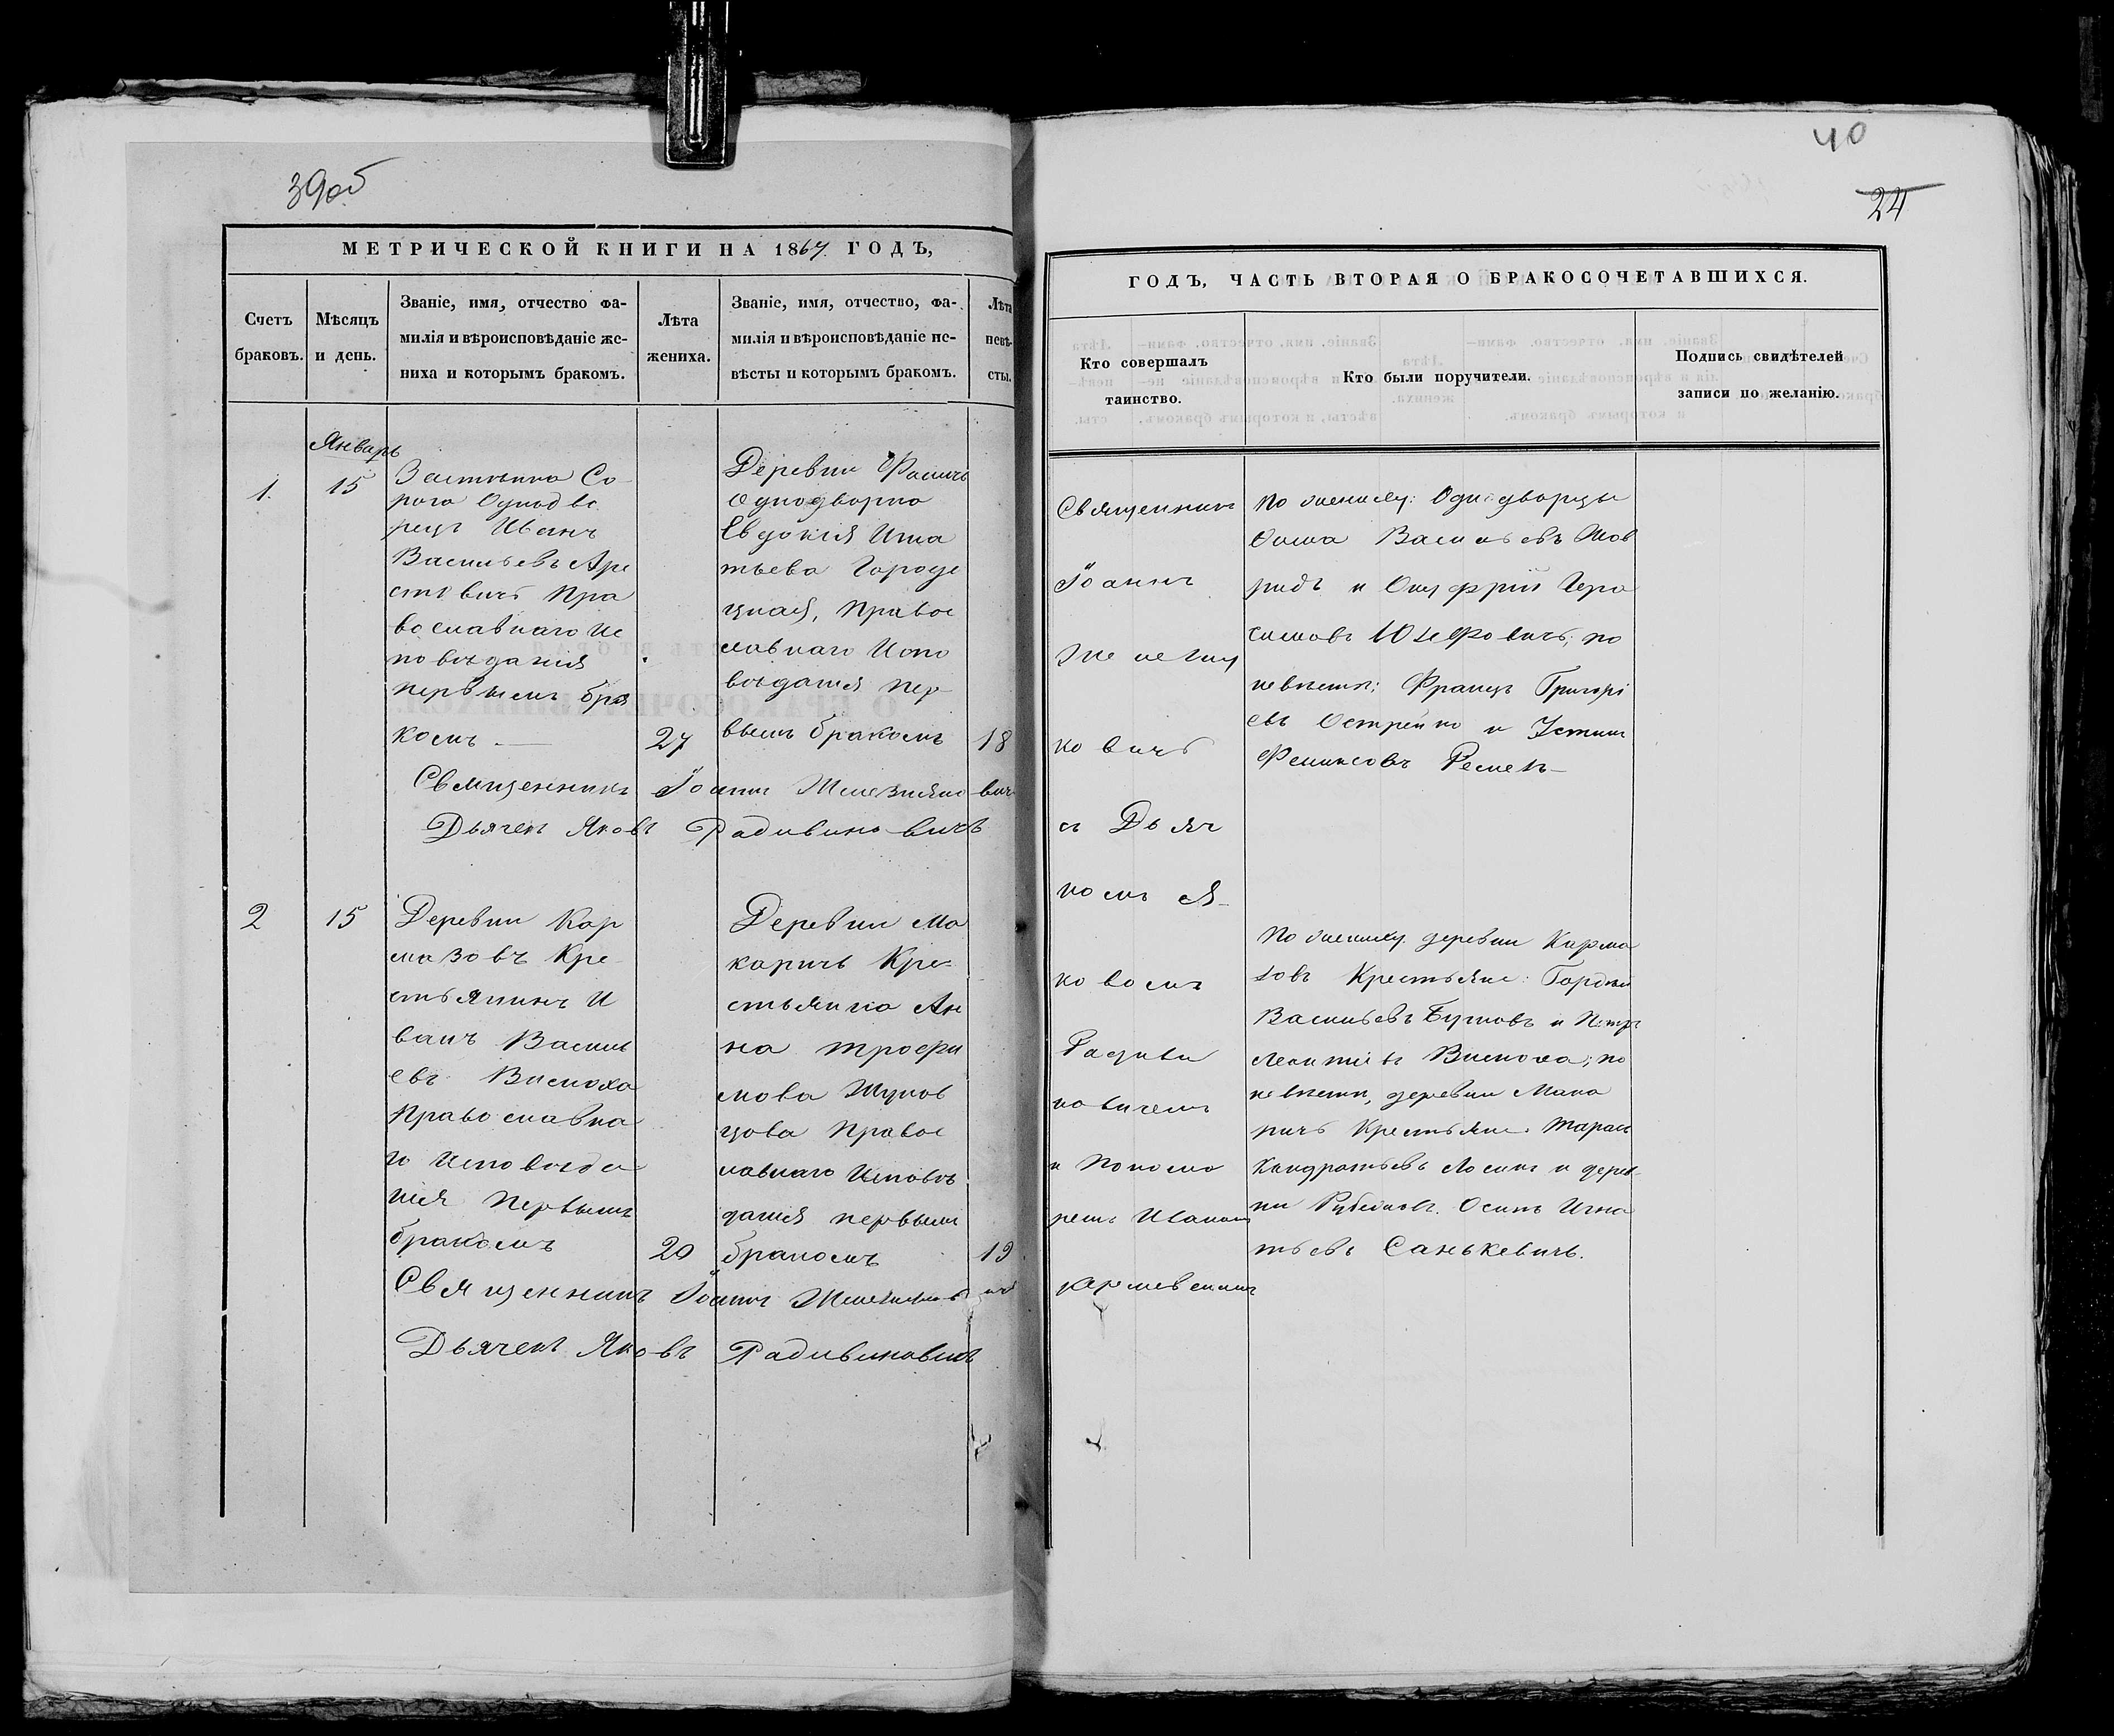 39об
МЕТРИЧЕСКОЙ КНИГИ НА 1867 ГОДЪ,
Счетъ браковъ.
Мѣсяцъ и день.
Званіе, имя, отчество фа-
милія и вѣроисповѣданіе же-
ниха и которымъ бракомъ.
Лѣта жениха.
Званіе, имя, отчество, фа-
милія и вѣроисповѣданіе не-
вѣсты и которымъ бракомъ.
Лѣта невѣ-
сты.
Январь
1.
15
Застѣнка Со
рога Однодво
рецъ Иванъ
Васильевъ Аре
стовичъ Пра
вославнаго Ис
повѣданія
первымъ бра
комъ.
27
Деревни
Однодворка
Евдокія Игна
тьева Городе
цкая, Правос
лавнаго Испо
вѣданія пер
вымъ бракомъ
18
Священникъ Іоаннъ Железняковичъ
Дьячекъ Яковъ Радивиновичъ
2
15
Деревни Кар
мазовъ Кре
стьянинъ И
ванъ Василь
евъ Висмоха
Православна
го Исповѣда
нія Первымъ
бракомъ
20
Деревни Ма
каричъ Кре-
стьянка Ан
на Трофи
мова
Правос
лавнаго Исповѣ
данія первымъ
бракомъ
19
Священникъ Іоаннъ
Дьячекъ Яковъ Радивиновичъ
40
24
ГОДЪ, ЧАСТЬ ВТОРАЯ О БРАКОСОЧЕТАВШИХСЯ.
Кто совершалъ
таинство.
Кто были поручители.
Подпись свидѣтелей
записи по желанію.
Священникъ
Іоаннъ
ковичъ
съ Дьяч
комъ Я-
ковомъ
Радиви
новичемъ
и Понома
ремъ Иваномъ
По жениху: Однодворцы
Фома Васильевъ
и Онуфрій Гера
симовъ Юзефовичъ; по
невѣстѣ: Францъ Григорі
евъ Острейко и Устинъ
По жениху деревни Карма
зовъ Крестьяне: Гордѣй
Васильевъ и Петръ
Леонтіевъ Висмоха; по
невѣстѣ, деревни Мака
ричъ Крестьяне: Тарасъ
Кондратьевъ и дерев-
ни Осипъ Игна
тьевъ Санькевичъ.